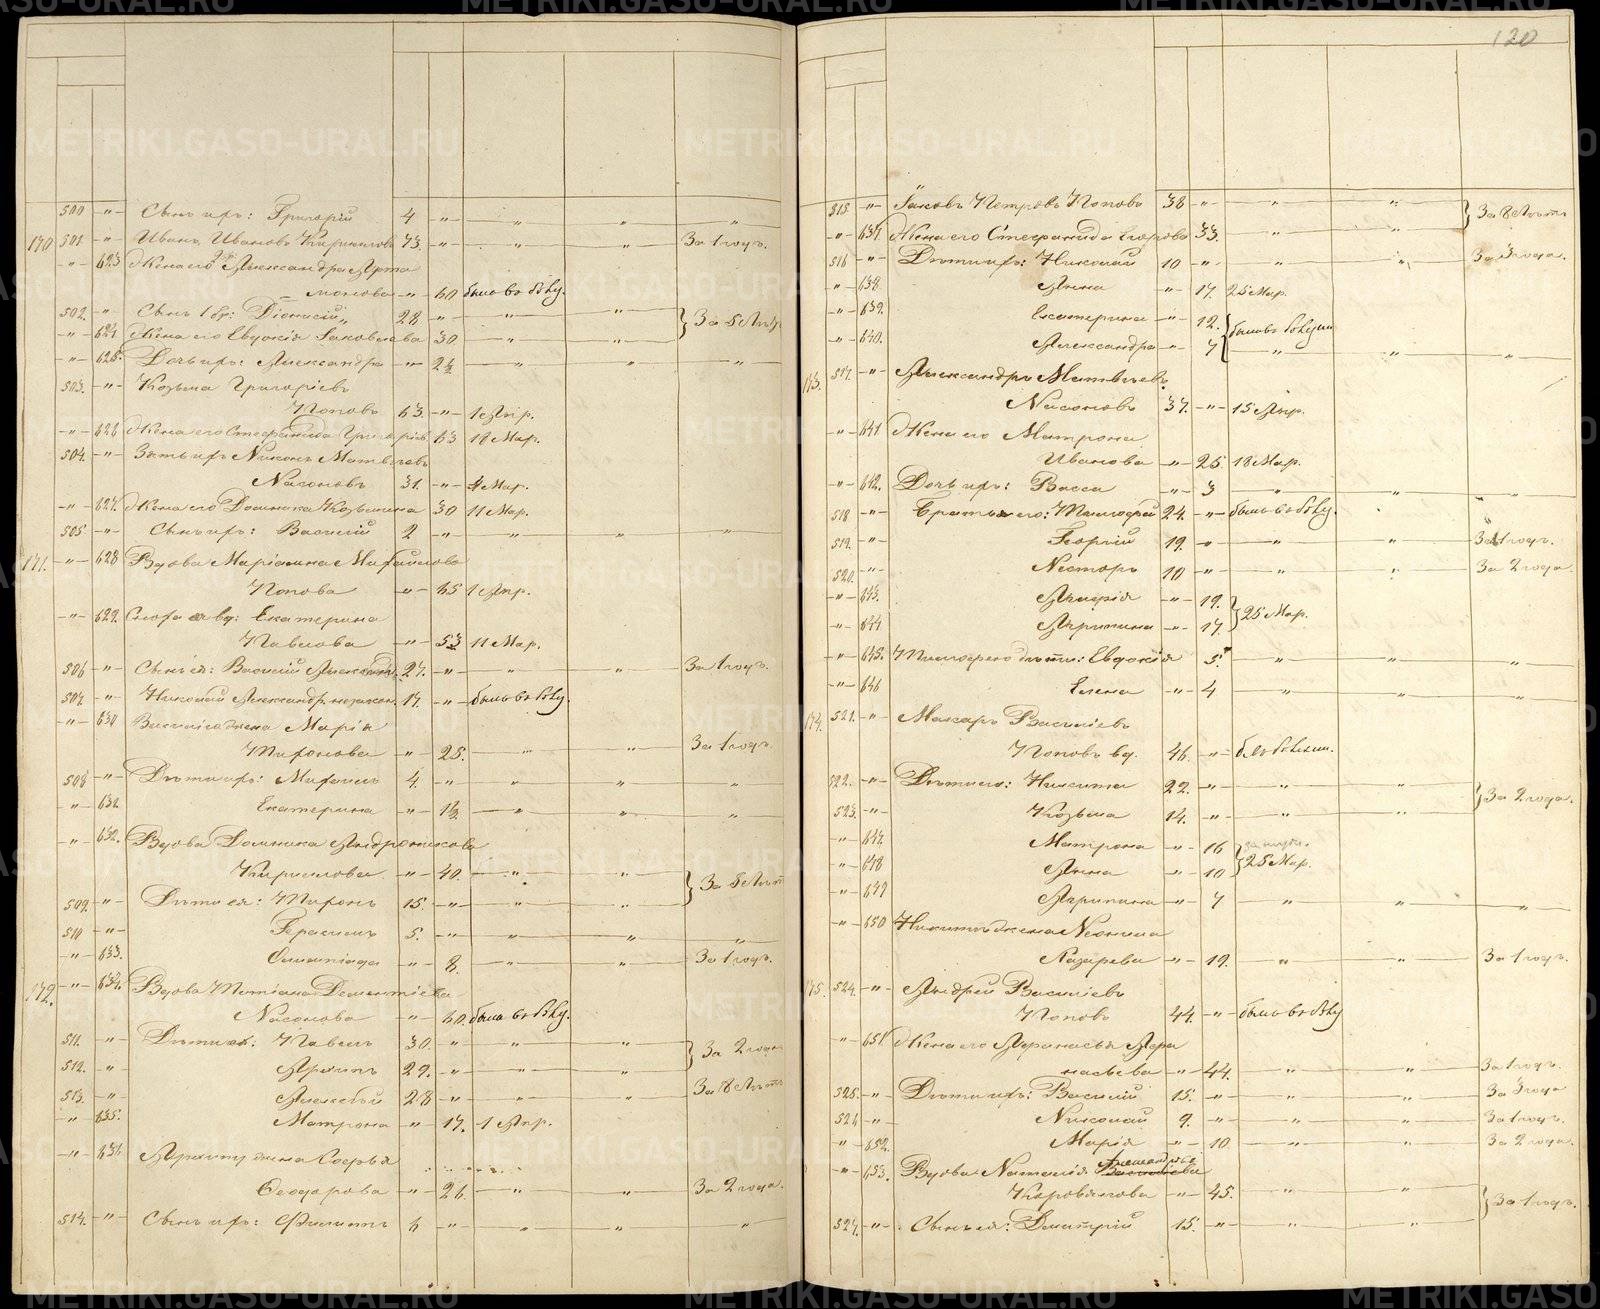 120
500 -"- Сынъ ихъ: Григорій 4 -"- " " "
170 501 -"- Иванъ Ивановъ Кириловъ 73 -"- " " За 1 годъ.
-"- 623 Жена его Александра Арта
монова -"- 60 была во Всеу.
502. -"- Сынъ Діонисій 28 -"- " "
} За 8 Лѣтъ
-"- 624 Жена его Евдокія Іаковлева 30 -"- "
-"- 625. Дочь ихъ: Александра -"- 2½ " " "
503. -"- Козьма Григоріевъ
Поповъ 63. -"- 1 Апр.
-"- 626 Жена его Стефанида Григоріев. 63 18 Мар.
504. -"- Зять ихъ Никонъ Матвѣевъ
Насоновъ 31. -"- 4 Мар.
-"- 627. Жена его Домника Козьмина 30 11 Мар.
505. -"- Сынъ ихъ: Василій 2 -"- " " "
171. -"- 628 Вдова Маріамна Михайлова
Попова -"- 65 1 Апр.
-"- 629. Сноха вд: Екатерина
Павлова -"- 53 11 Мар.
506 -"- Сынъ ея: Василій 27. -"- " За 1 годъ.
507 -"- Николай Александр. 17. -"- былъ во Всеу.
-"- 630 Василія жена Марія
Тихонова -"- 25. " " За 1 годъ.
508 -"- Дѣти ихъ: Михаилъ 4. -"- " " "
-"- 631. Екатерина -"- 1½ " " "
-"- 632. Вдова Домника Андроникова
Кирилова -"- 40. " "
} За 8 Лѣтъ
509. -"- Дѣти ея: Тихонъ 15. -"- " "
510 -"- Герасимъ 5. -"- " " "
-"- 633. Олимпіада -"- 8. " " За 1 годъ.
172. -"- 634. Вдова Татіана Дементіева
Насонова -"- 60. была во Всеу.
511. -"- Дѣти ея: Павелъ 30. -"- " "
} За 2 года
512. -"- Архипъ 29. -"- " "
513. -"- Алексѣй 28 -"- " " За 8 Лѣтъ
-"- 635. Матрона -"- 17. 1 Апр.
-"- 636 Архипу жена Софья
Ѳеодорова -"- 26. " " За 2 года.
514. -"- Сынъ ихъ: Филиппъ 6 -"- " " "
515. -"- Іаковъ Петровъ Поповъ 38 -"- " "
} За 8 Лѣтъ
-"- 637 Жена его Стефанида Егорова 33. " "
516 -"- Дѣти ихъ: Николай 10 -"- " " За 3 года.
-"- 638. Анна -"- 17. 25 Мар.
-"- 639. Екатерина -"- 12.
{ была во Всеу
-"- 640. Александра -"- 7 " " "
173. 517. -"- Александръ Матвѣевъ
Насоновъ 37. -"- 15 Апр.
-"- 641 Жена его Матрона
Иванова -"- 25. 18 Мар.
-"- 642. Дочь ихъ: Васса -"- 3 " " "
518 -"- Братья его: Тимофей 24. -"- былъ во Всеу.
519. -"- Георгій 19. " " " За 1 годъ.
520. -"- Несторъ 10 -"- " " За 2 года
-"- 643. Марія -"- 19.
} 25 Мар.
-"- 644 Агрипина -"- 17.
-"- 645. Тимофея дѣти: Евдокія 5. " " "
-"- 646 Елена -"- 4 " " "
174. 521. -"- Макаръ Василіевъ
Поповъ вд. 46. -"-
522. -"- Дѣти его: Никита 22. -"- " "
} За 2 года.
523. -"- Козьма 14. -"- " "
-"- 647. Матрона -"- 16
} 25 Мар.
-"- 648 Анна -"- 10
-"- 649 Агрипина -"- 7 " " "
-"- 650 Никиты жена Неонила
Лазарева -"- 19. " " За 1 годъ.
175. 524. -"- Андрей Василіевъ
Поповъ 44. -"- былъ во Всеу
-"- 651 Жена его Афанасья Афа
насьева -"- 44. " " За 1 годъ.
525. -"- Дѣти ихъ: Василій 15. -"- " " За 3 года
526 -"- Николай 9. -"- " " За 1 годъ.
-"- 652. Марія -"- 10 " " За 2 года.
-"- 653. Вдова Наталія
Коровякова -"- 45. " "
} За 1 годъ.
527. -"- Сынъ ея: Димитрій 15. -"- " "